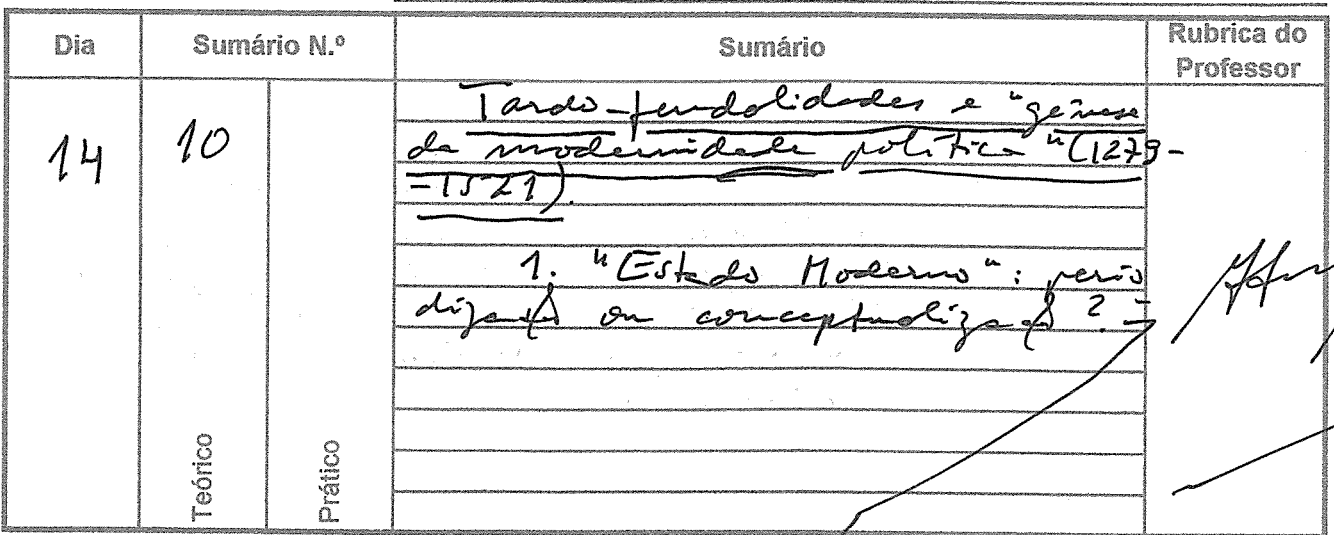 Dia Sumário N.º Sumário Rubrica do Professor
14 10
Tardo-feudalidades e "génese
da modernidade política" (1279-
-1521).
1. "Estado Moderno": perio
dização ou conceptualização?
Teórico Prático